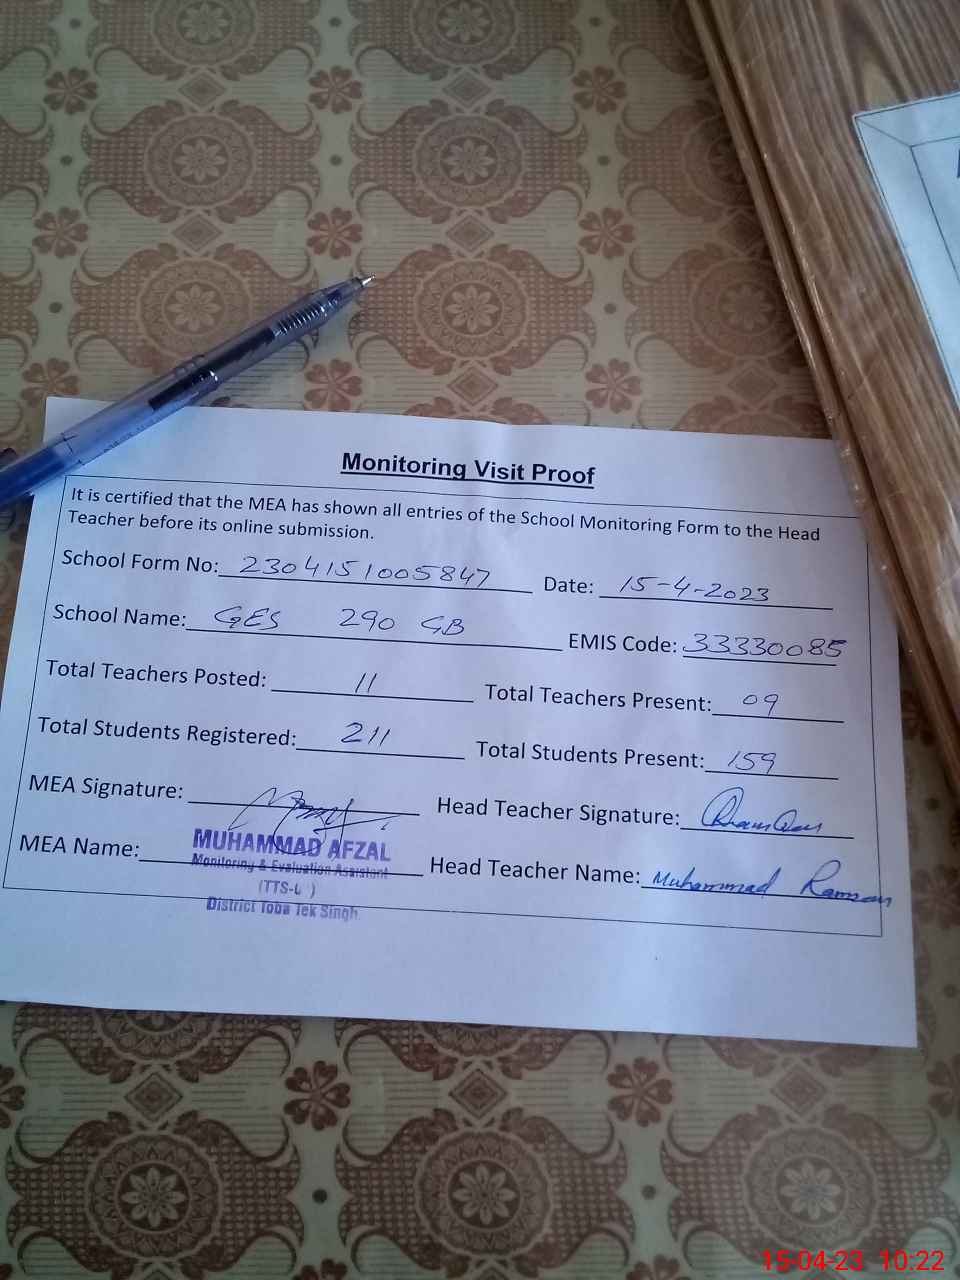 Monitoring Visit Proof
It is certified that the MEA has shown all entries of the School Monitoring Form to the Head
Teacher before its online submission.
School Form No: 2304151005847 Date: 15-4-2023
School Name: GES 290 GB EMIS Code: 33330085
Total Teachers Posted: 11 Total Teachers Present: 09
Total Students Registered: 211 Total Students Present: 159
MEA Signature: Head Teacher Signature:
MEA Name: MUHAMMAD AFZAL Head Teacher Name: Muhammad Ramzan
Monitoring & Evaluation Assistant
District Toba Tek Singh
15-04-23 10:22